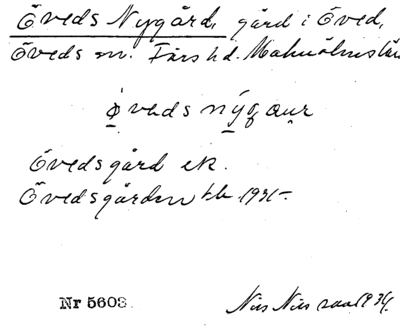 Öveds Nygård, gård i Öved,
Öveds sn. Färs hd. Malmöhus län
Övedsgård ek.
Övedsgården tk 1931-.
Nr 5603.
Nils Nilsson 1934.